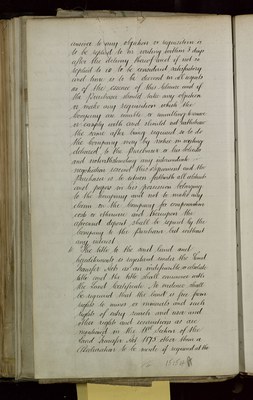 answer to any objection or requisition is
to be replied to in writing within 7 days
after the delivery thereof and if not so
replied to is to be considered satisfactory
and time is to be deemed in all respects
as of the essence of this Clause and if
the Purchaser should take any objection
or make any requisition which the
Company are unable or unwilling to remove
or comply with and should not withdraw
the same after being required so to do
the Company may by notice in writing
delivered to the Purchaser or his Solicitor
and notwithstanding any intermediate
negotiation rescind this Agreement and the
Purchaser is to return forthwith all abstracts
and papers in his possession belonging
to the Company and not to make any
claim on the Company for compensation
costs or otherwise and thereupon the
aforesaid deposit shall be repaid by the
Company to the Purchaser but without
any interest
The title to the said land and
hereditaments is registered under the Land
Transfer Acts as an indefeasible or absolute
title and the title shall commence with
the Land Certificate. No evidence shall
be required that the land is free from
rights to mines or minerals and such
rights of entry search and user and
other rights and reservations as are
mentioned in the 18th Section of the
Land Transfer Act 1875 other than a
Declaration to be made if required at the